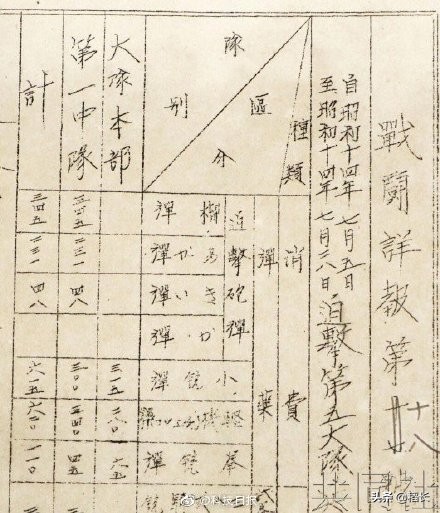 戰鬪詳報第
自昭和十四年七月五日
至昭和十四年七月二八日
迫擊第五大隊
種類
區分
隊別
消費
彈藥
迫擊砲彈
榴彈
あか彈
きい彈
小銃彈
拳銃彈
大隊本部
三一五
二八〇
六五
第一中隊
三四五
二三一
四八
三〇〇
三四〇
四五
計
三四五
二三一
四八
六一五
六二〇
一一〇
共同社
头条 @稻长